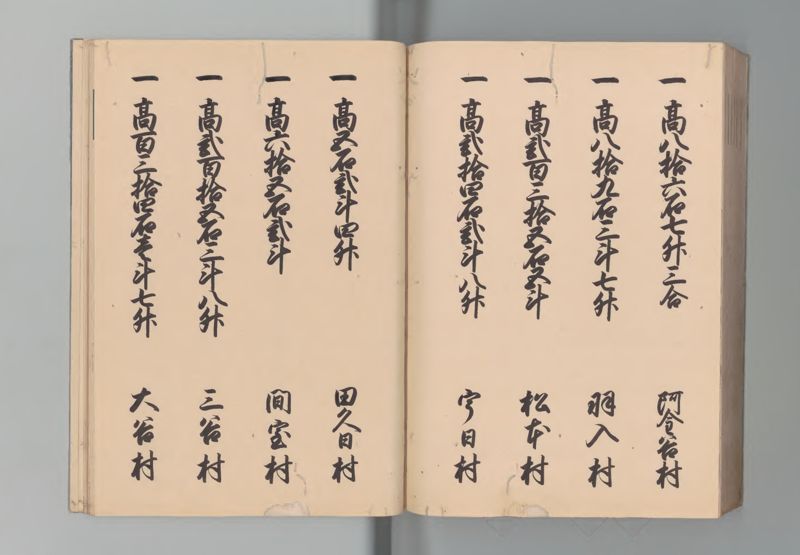 一 高八拾六石七升三合 阿倉谷村
一 高八拾九石三斗七升 羽入村
一 高弐百三拾五石五斗 松本村
一 高弐拾四石弐斗八升 日村
一 高五石弐斗四升 田久日村
一 高六拾五石弐斗 間室村
一 高弐百拾五石三斗八升 三谷村
一 高百三拾四石壱斗七升 大谷村